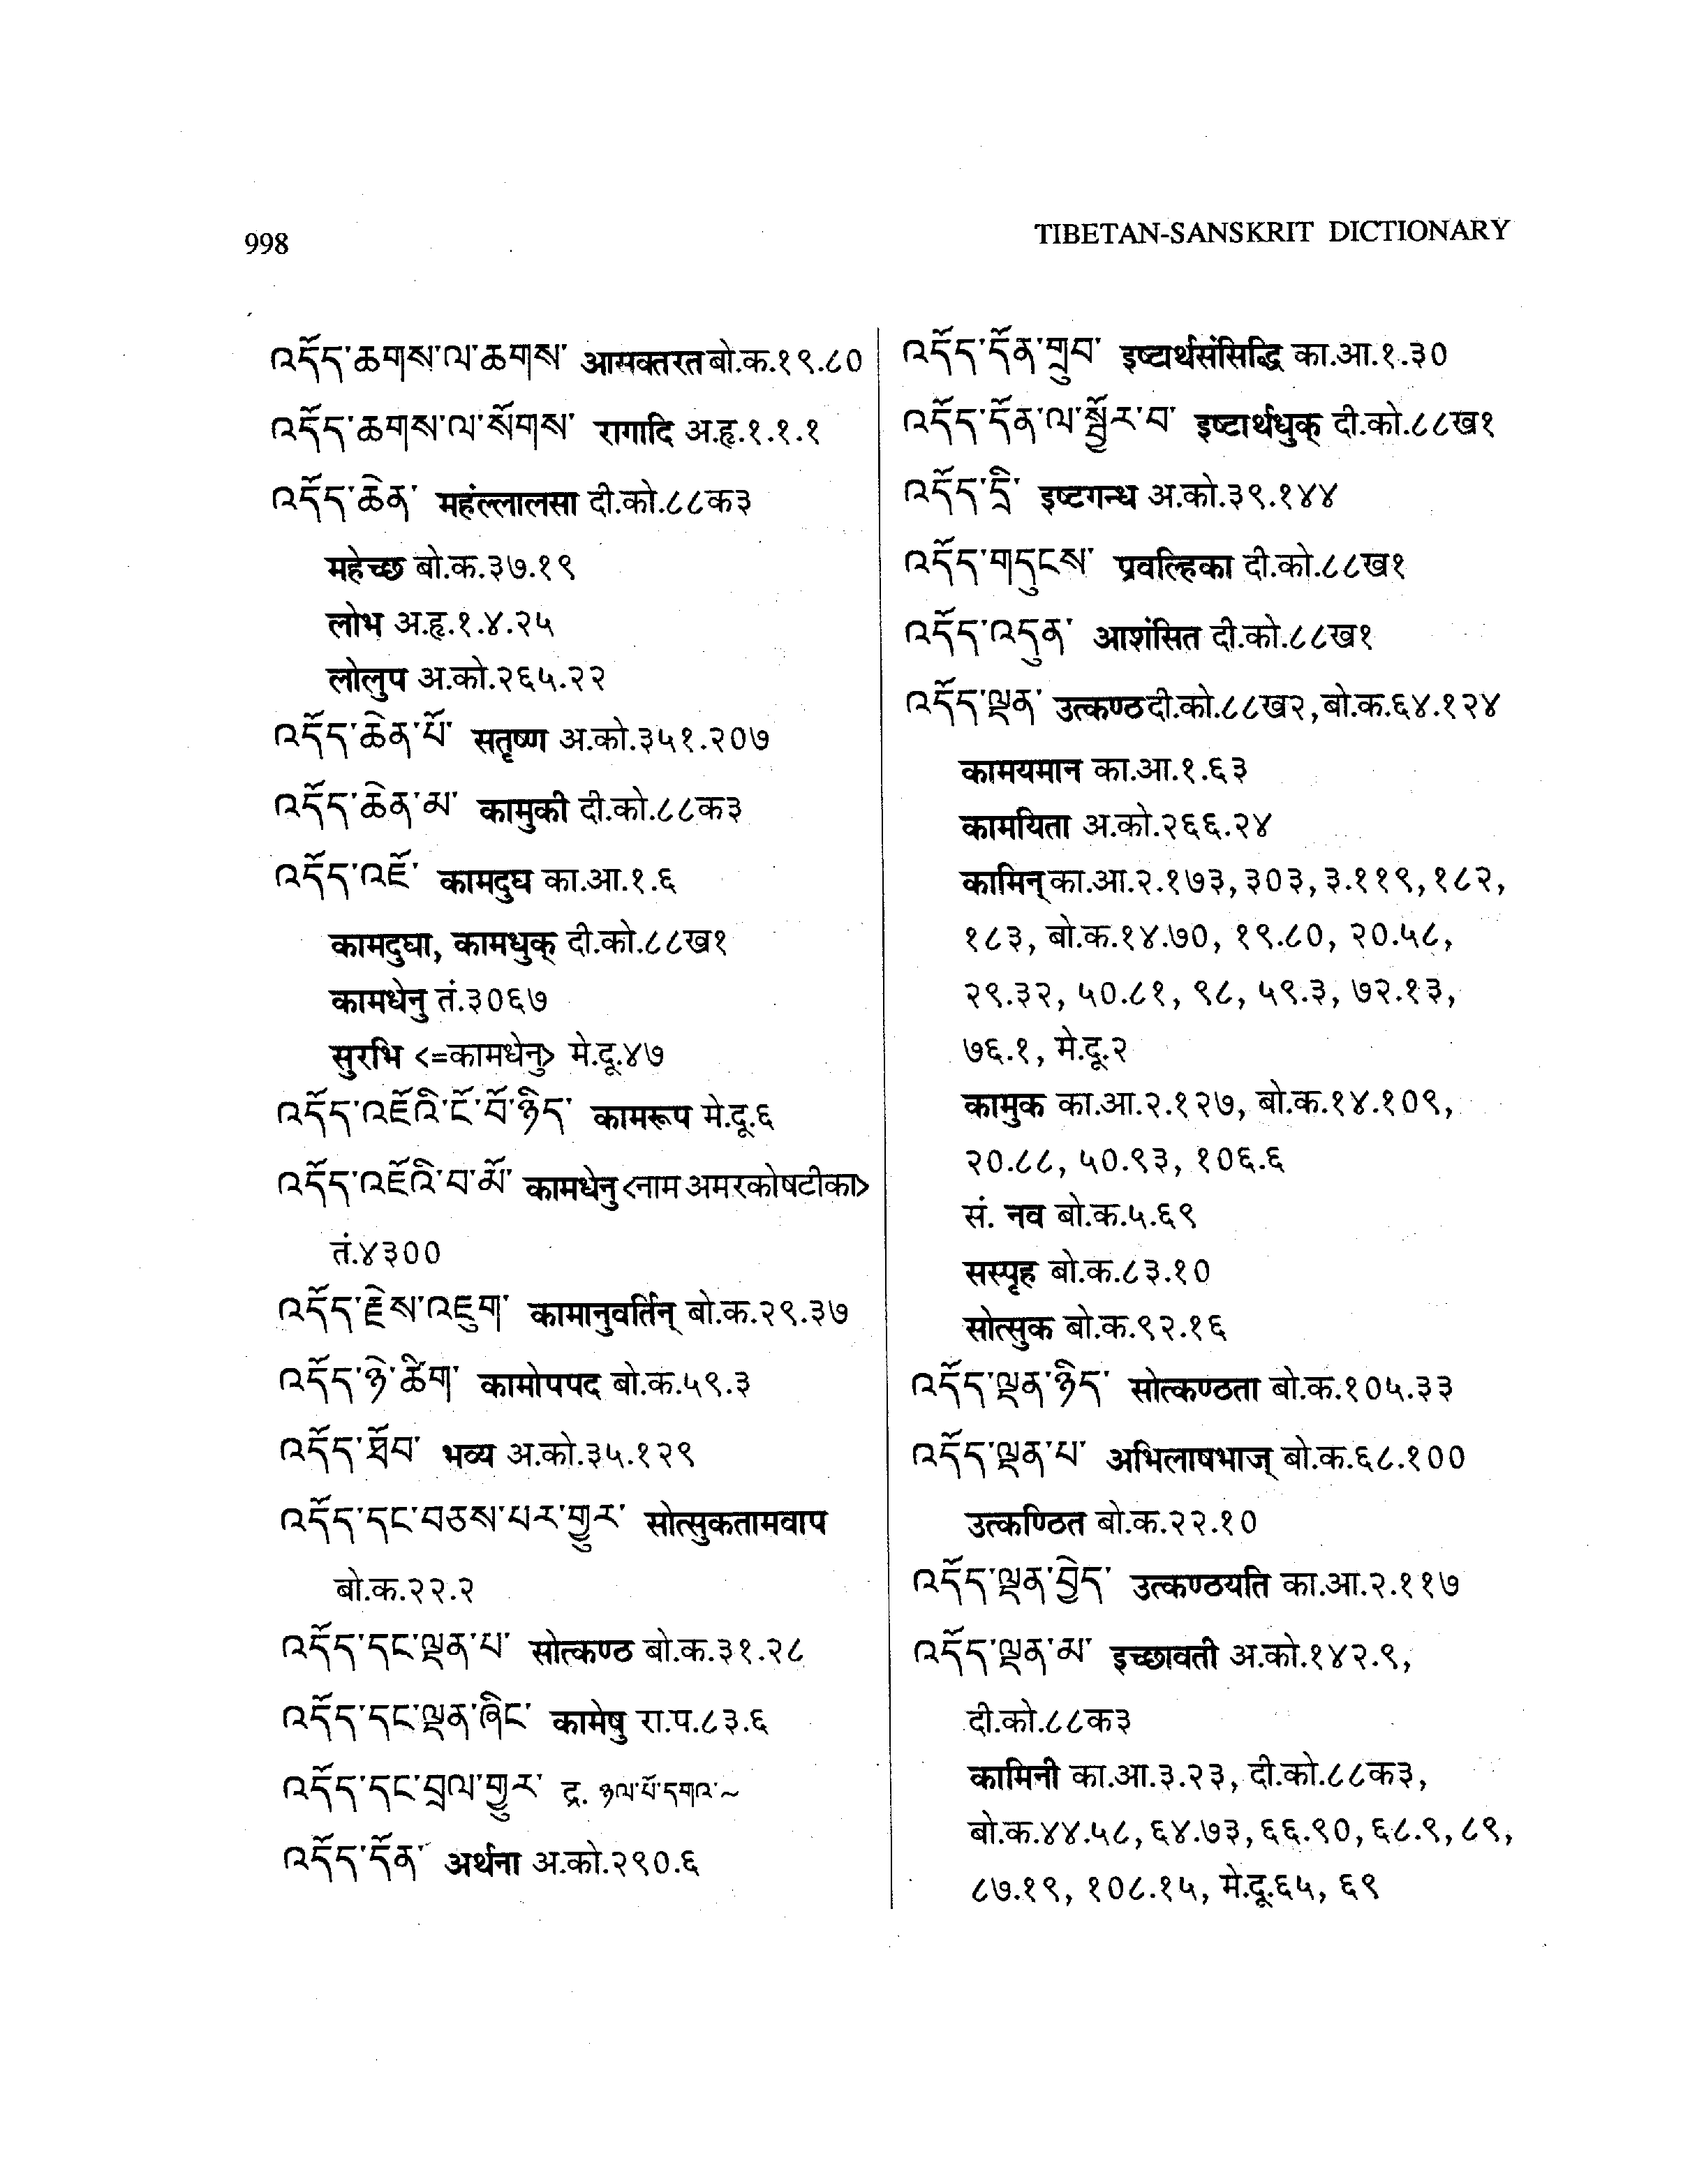 998
TIBETAN-SANSKRIT DICTIONARY
འདོད་ཆགས་ལ་ཆགས་ आसक्तरत बो.क.१९.८०
འདོད་ཆགས་ལ་སོགས་ रागादि अ.हृ.१.१.१
འདོད་ཆེན་ महंल्लालसा दी.को.८८क३
महेच्छ बो.क.३७.१९
लोभ अ.हृ.१.४.२५
लोलुप अ.को.२६५.२२
འདོད་ཆེན་པོ་ सतृष्ण अ.को.३५१.२०७
འདོད་ཆེན་མ་ कामुकी दी.को.८८क३
འདོད་འཇོ་ कामदुघ का.आ.१.६
कामदुघा, कामधुक् दी.को.८८ख१
कामधेनु तं.३०६७
सुरभि <=कामधेनु> मे.दू.४७
འདོད་འཇོའི་ངོ་བོ་ཉིད་ कामरूप मे.दू.६
འདོད་འཇོའི་བ་མོ་ कामधेनु <नाम अमरकोषटीका>
तं.४३००
འདོད་རྗེས་འཇུག་ कामानुवर्तिन् बो.क.२९.३७
འདོད་ཉེ་ཚིག་ कामोपपद बो.क.५९.३
འདོད་ཐོབ་ भव्य अ.को.३५.१२९
འདོད་དང་བཅས་པར་གྱུར་ सोत्सुकतामवाप
बो.क.२२.२
འདོད་དང་ལྡན་པ་ सोत्कण्ठ बो.क.३१.२८
འདོད་དང་ལྡན་ཞིང་ कामेषु रा.प.८३.६
འདོད་དང་བྲལ་གྱུར་ द्र. ཉལ་པོ་དགའ་~
འདོད་དོན་ अर्थना अ.को.२९०.६
འདོད་དོན་གྲུབ་ इष्टार्थसंसिद्धि का.आ.१.३०
འདོད་དོན་ལ་སྦྱོར་བ་ इष्टार्थधुक् दी.को.८८ख१
འདོད་དྲི་ इष्टगन्ध अ.को.३९.१४४
འདོད་གདུངས་ प्रवल्हिका दी.को.८८ख१
འདོད་འདུན་ आशंसित दी.को.८८ख१
འདོད་ལྡན་ उत्कण्ठ दी.को.८८ख२, बो.क.६४.१२४
कामयमान का.आ.१.६३
कामयिता अ.को.२६६.२४
कामिन् का.आ.२.१७३, ३०३, ३.११९, १८२,
१८३, बो.क.१४.७०, १९.८०, २०.५८,
२९.३२, ५०.८१, ९८, ५९.३, ७२.१३,
७६.१, मे.दू.२
कामुक का.आ.२.१२७, बो.क.१४.१०९,
२०.८८, ५०.९३, १०६.६
सं. नव बो.क.५.६९
सस्पृह बो.क.८३.१०
सोत्सुक बो.क.९२.१६
འདོད་ལྡན་ཉིད་ सोत्कण्ठता बो.क.१०५.३३
འདོད་ལྡན་པ་ अभिलाषभाज् बो.क.६८.१००
उत्कण्ठित बो.क.२२.१०
འདོད་ལྡན་བྱེད་ उत्कण्ठयति का.आ.२.११७
འདོད་ལྡན་མ་ इच्छावती अ.को.१४२.९,
दी.को.८८क३
कामिनी का.आ.३.२३, दी.को.८८क३,
बो.क.४४.५८, ६४.७३, ६६.९०, ६८.९, ८९,
८७.१९, १०८.१५, मे.दू.६५, ६९